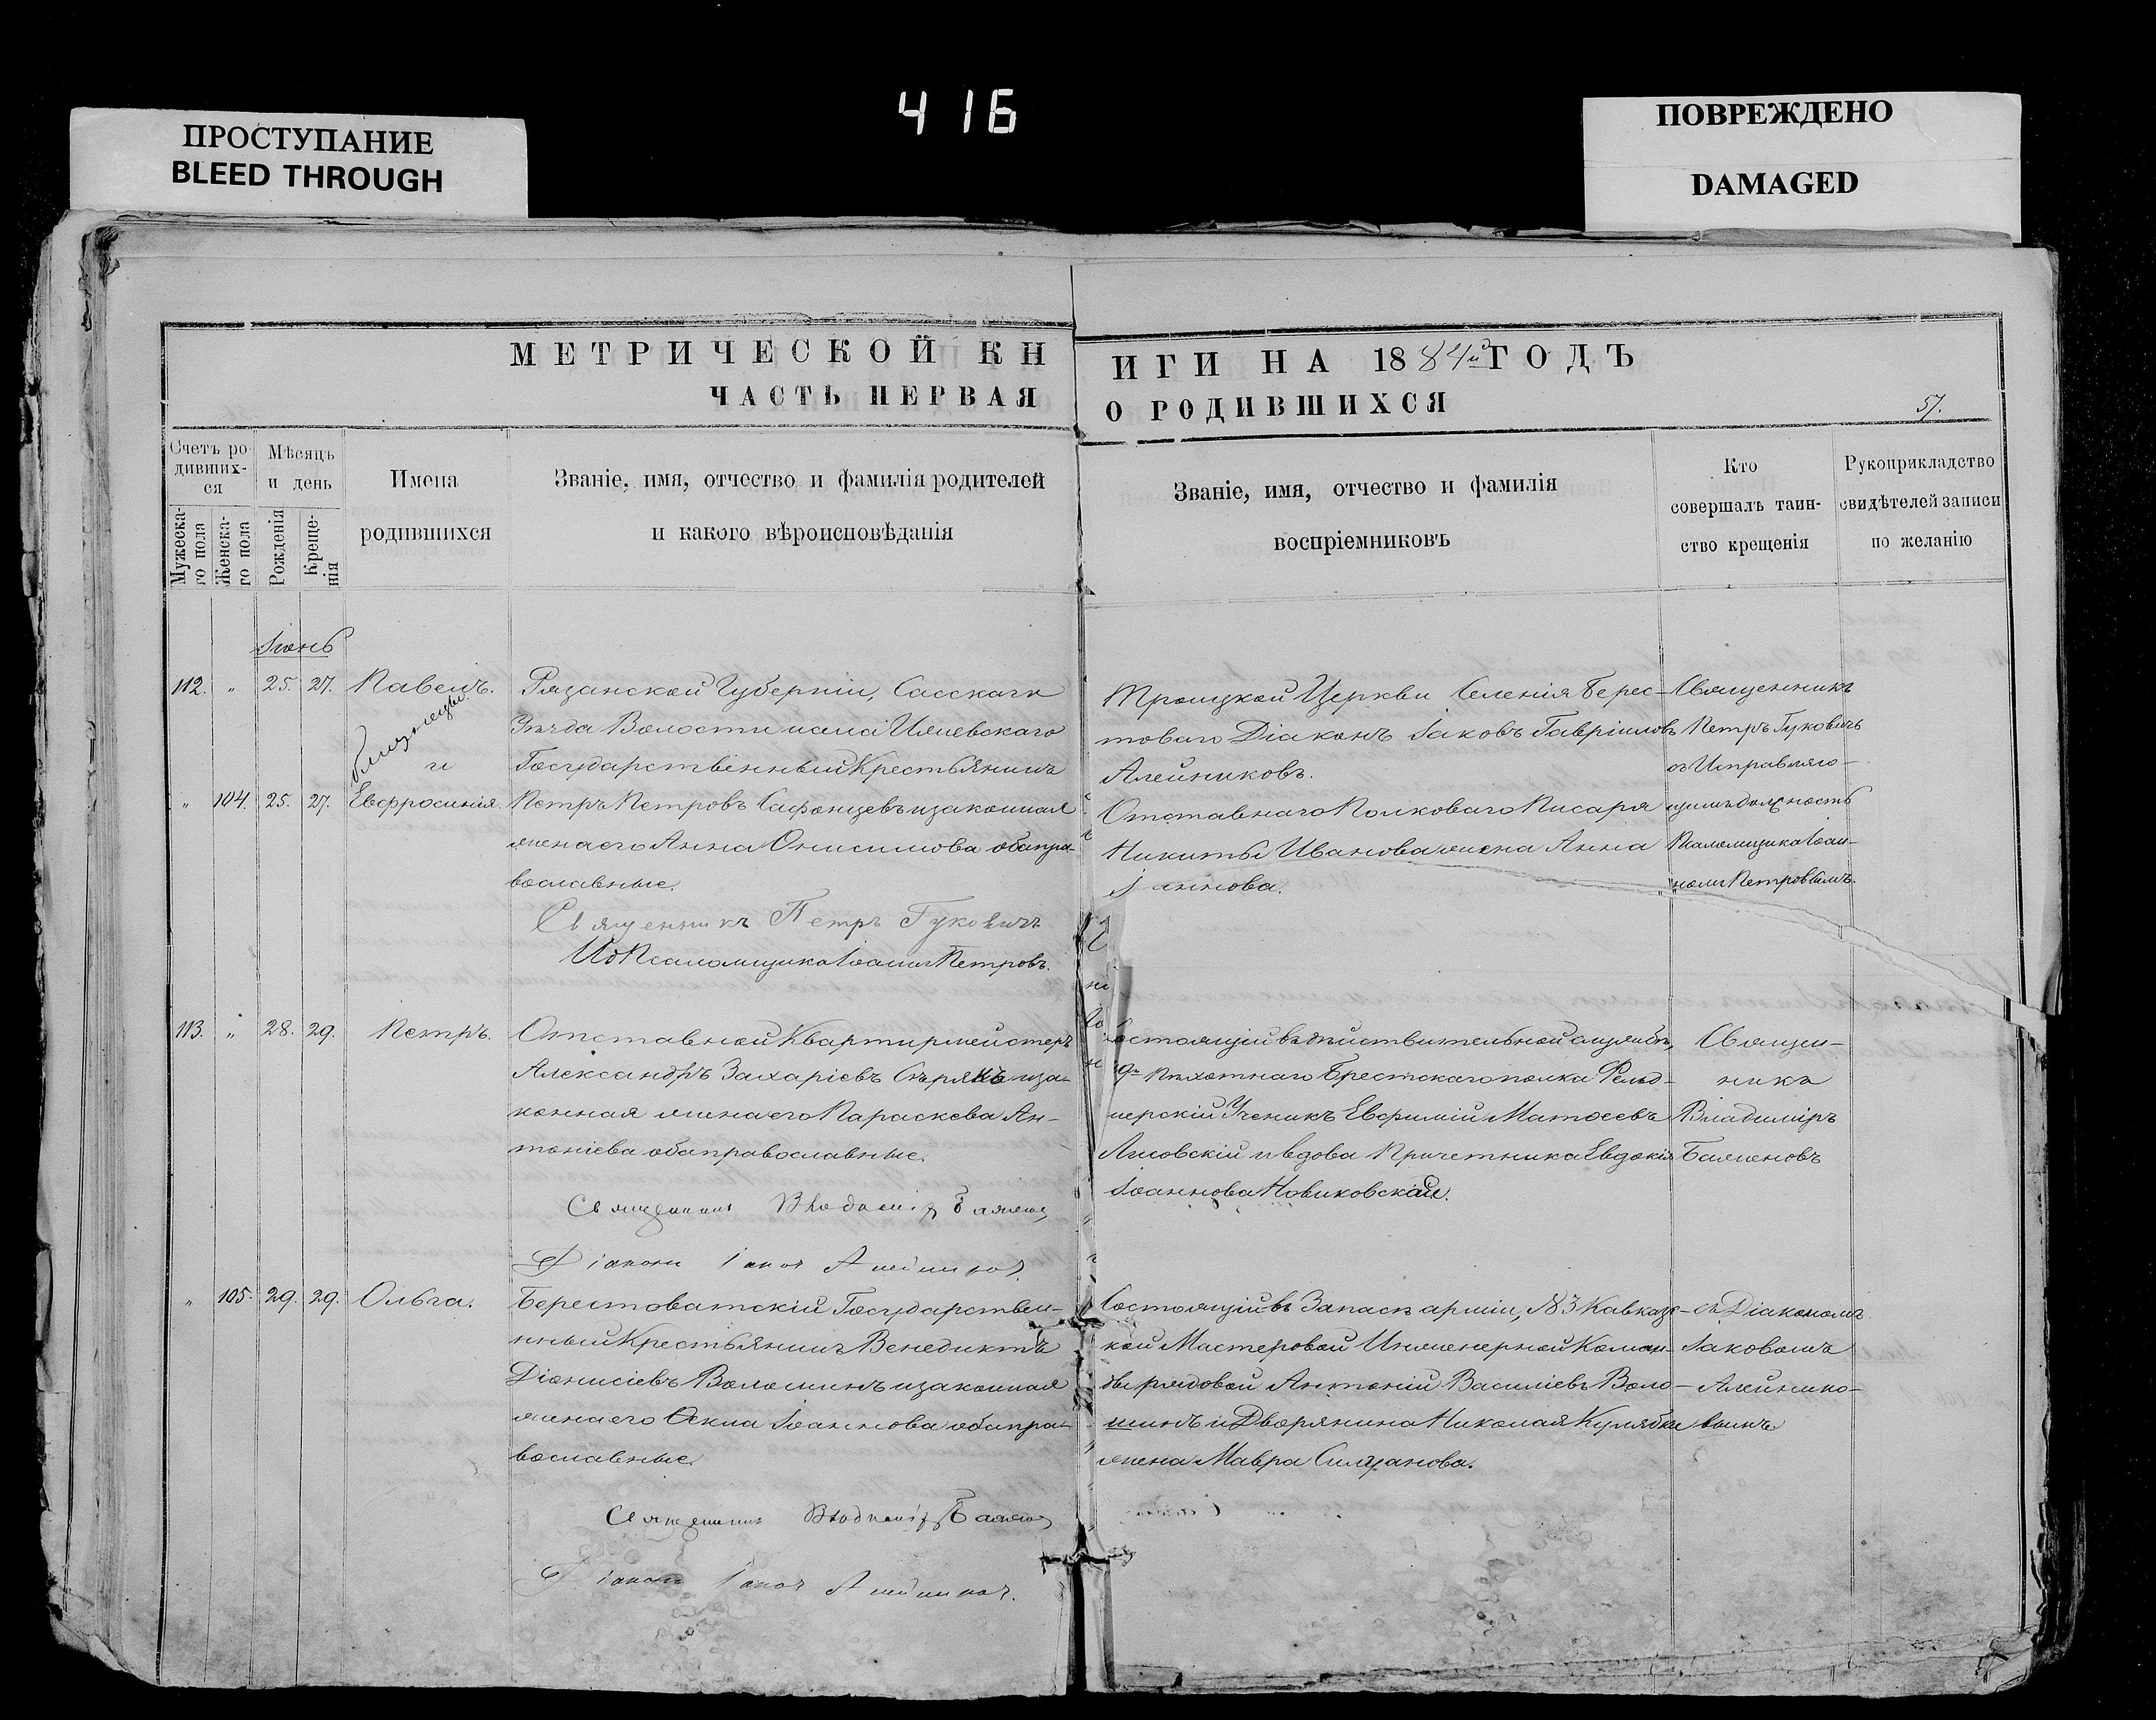 416
ПРОСТУПАНИЕ
BLEED THROUGH
ПОВРЕЖДЕНО
DAMAGED
МЕТРИЧЕСКОЙ КНИГИ НА 1884й ГОДЪ
ЧАСТЬ ПЕРВАЯ О РОДИВШИХСЯ
57.
Счетъ ро-
дивших-
ся
Мужеска-
го пола
Женска-
го пола
Мѣсяцъ
и день
Рожденія
Креще-
нія
Имена
родившихся
Званіе, имя, отчество и фамилія родителей
и какого вѣроисповѣданія
Званіе, имя, отчество и фамилія
воспріемниковъ
Кто
совершалъ таин-
ство крещенія
Рукоприкладство
свидѣтелей записи
по желанію
Іюнь
112. " 25. 27. Павелъ.
близнецы.
и
" 104. 25. 27. Евфросинія.
Рязанской Губерніи, Сасскаго
Уѣзда Волости
Государственный Крестьянинъ
Петръ Петровъ Сафонцевъ и законная
жена его Анна Онисимова оба пра-
вославные.
Священникъ Петръ Гуковичъ
ИД Псаломщика Іоаннъ Петровъ.
Троицкой Церкви Селенія Берес-
товаго Діаконъ Іаковъ Гавріиловъ
Алейниковъ.
Отставнаго Полковаго Писаря
Никиты Иванова жена Анна
Іаннова.
Священникъ
Петръ Гуковичъ
съ Исправляю-
щимъ должность
Псаломщика Іоан-
номъ Петровымъ.
113. " 28. 29. Петръ.
Отставной Квартирмейстеръ
Александръ Захаріевъ Сѣрякъ и за-
конная жена его Параскева Ан-
тоніева оба православные.
Священникъ Владиміръ Баженовъ
Діаконъ Іаковъ Алейниковъ.
Состоящій въ дѣйствительной службѣ,
пѣхотнаго Брестскаго полка Фельд-
шерскій Ученикъ Евфимій Матѳеевъ
Лисовскій и вдова Причетника Евдокія
Іоаннова Новиковская.
Священ-
никъ
Владиміръ
Баженовъ
" 105. 29. 29. Ольга.
Берестоватскій Государствен-
нный Крестьянинъ Венедиктъ
Діонисіевъ Волошинъ и законная
жена его Ѳекла Іоаннова оба пра-
вославные.
Священникъ Владиміръ Баженовъ
Діаконъ Іаковъ Алейниковъ.
Состоящій въ Запасѣ арміи, №3 Кавказс-
кой Мастеровой Инженерной Коман-
ды рядовой Антоній Василіевъ Воло-
шинъ и Дворянина Николая Кулябки
жена Мавра Силуанова.
съ Діакономъ
Іаковомъ
Алейнико-
вымъ.